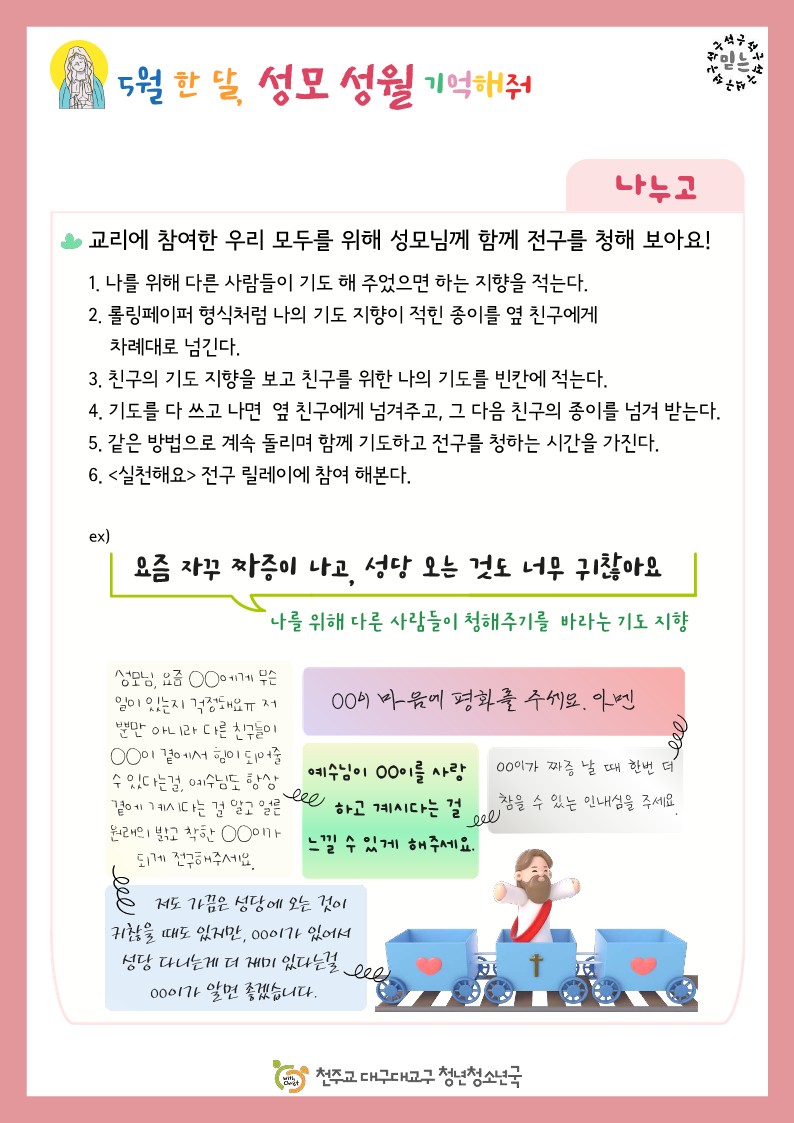 5월 한 달, 성모 성월 기억해줘
믿는
석구 석구 석구 석구 석구 석구
나누고
교리에 참여한 우리 모두를 위해 성모님께 함께 전구를 청해 보아요!
1. 나를 위해 다른 사람들이 기도 해 주었으면 하는 지향을 적는다.
2. 롤링페이퍼 형식처럼 나의 기도 지향이 적힌 종이를 옆 친구에게
차례대로 넘긴다.
3. 친구의 기도 지향을 보고 친구를 위한 나의 기도를 빈칸에 적는다.
4. 기도를 다 쓰고 나면 옆 친구에게 넘겨주고, 그 다음 친구의 종이를 넘겨 받는다.
5. 같은 방법으로 계속 돌리며 함께 기도하고 전구를 청하는 시간을 가진다.
6. <실천해요> 전구 릴레이에 참여 해본다.
ex)
요즘 자꾸 짜증이 나고, 성당 오는 것도 너무 귀찮아요
나를 위해 다른 사람들이 청해주기를 바라는 기도 지향
성모님, 요즘 OO에게 무슨
일이 있는지 걱정돼요ㅠ 저
뿐만 아니라 다른 친구들이
OO이 곁에서 힘이 되어줄
수 있다는걸, 예수님도 항상
곁에 계시다는 걸 알고 얼른
원래의 밝고 착한 OO이가
되게 전구해주세요.
OO이 마음에 평화를 주세요. 아멘
예수님이 OO이를 사랑
하고 계시다는 걸
느낄 수 있게 해주세요.
OO이가 짜증 날 때 한번 더
참을 수 있는 인내심을 주세요.
저도 가끔은 성당에 오는 것이
귀찮을 때도 있지만, OO이가 있어서
성당 다니는게 더 재미 있다는걸
OO이가 알면 좋겠습니다.
with Christ
천주교 대구대교구 청년청소년국